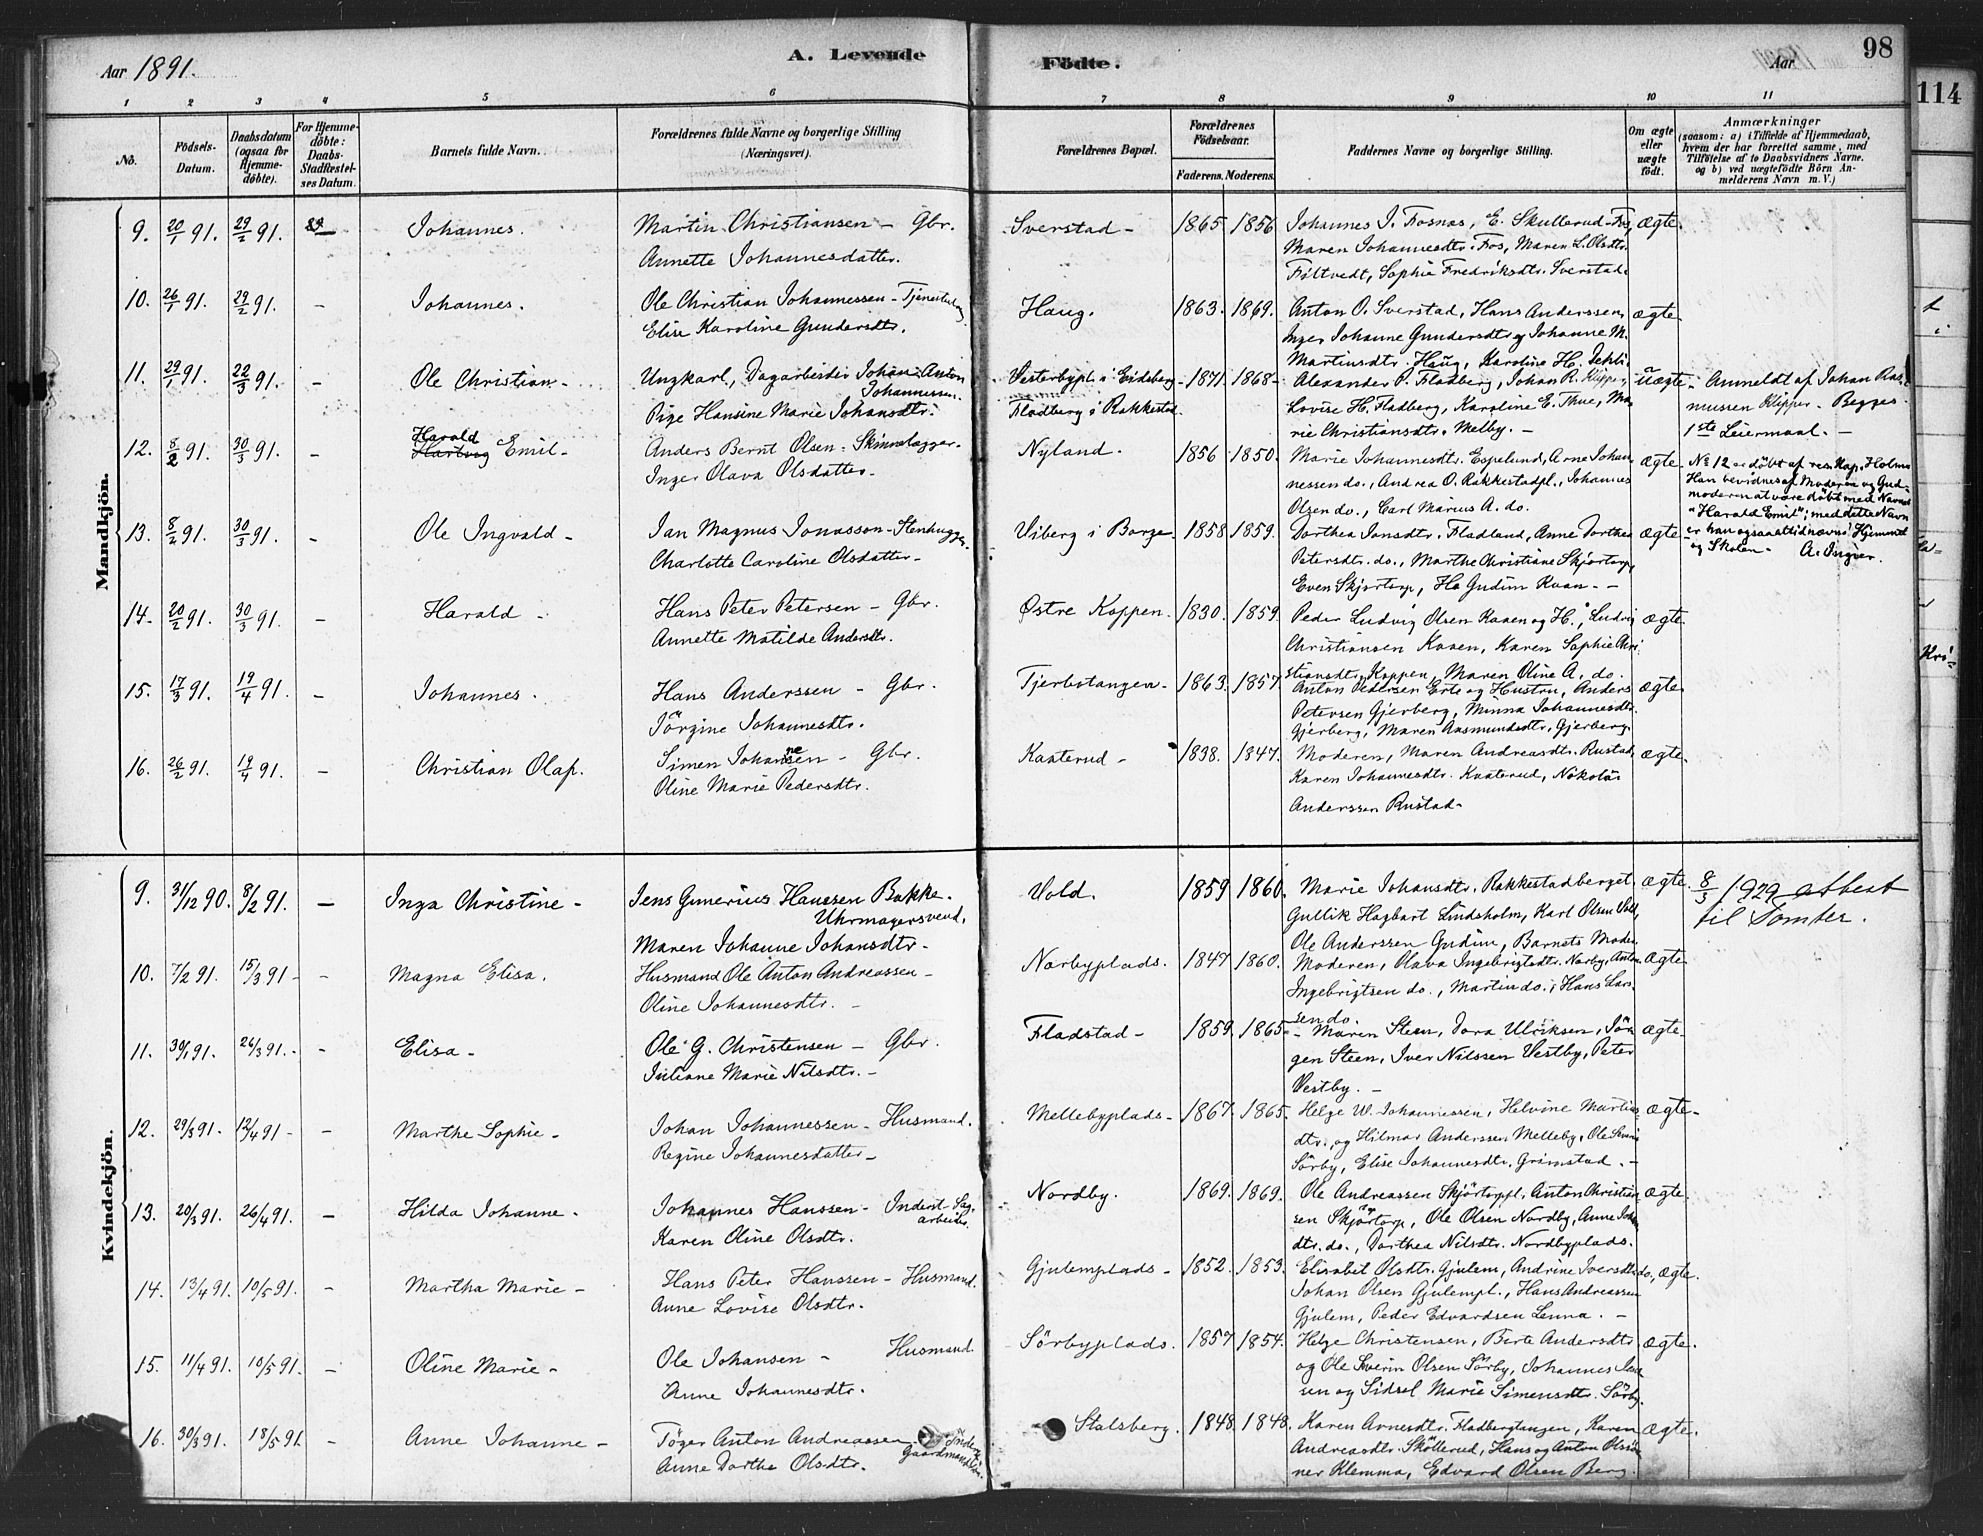 Aar 1891.
A. Levende
Födte.
Aar
98
114
1 2 3 4 5 6 7 8 9 10 11
No.
Födsels-Datum.
Daabsdatum (ogsaa for Hjemme-döbte).
For Hjemme-döbte: Daabs-Stadfæstel-ses Datum.
Barnets fulde Navn.
Forældrenes fulde Navne og borgerlige Stilling (Næringsvei).
Forældrenes Bopæl.
Forældrenes Födselsaar.
Faderens. Moderens.
Faddernes Navne og borgerlige Stilling.
Om ægte eller uægte födt.
Anmærkninger
(saasom: a) i Tilfælde af Hjemmedaab,
hvem der har forrettet samme, med
Tilföielse af to Daabsvidners Navne.
og b) ved uægtefödte Börn An-
melderens Navn m. V.)
Mandkjön.
9. 20/1 91. 29/2 91. Johannes. Martin Christiansen - Gbr. Sverstad - 1865 1856 Johannes J. Fosnæs, E. Skullerud-Fos, ægte.
Annette Johannesdatter. Maren Johannesdtr. Fos, Maren L. Olsdtr.
Föltvedt, Sophie Fredriksdtr. Sverstad.
10. 26/1 91. 29/2 91. - Johannes. Ole Christian Johannessen - Haug. 1863. 1869. Anton O. Sverstad, Hans Anderssen, ægte
Elise Karoline Gundersdtr. Inger Johanne Gundersdtr og Johanne M.
Martinsdtr. Haug, Karoline H.
11. 29/1 91. 22/3 91. - Ole Christian - Ungkarl, Dagarbeider Johan Anton Vesterbypl. i Eidsberg - 1871. 1868 - Alexander P. Fladberg, Johan R. Klipper, uægte - Anmeldt af Johan Ras-
Johannessen.
Pige Hansine Marie Johansdtr. Fladberg i Rakkestad. Lovise H. Fladberg, Karoline E. Thue, Ma- mussen Klipper - Begges
rie Christiansdtr. Melby. - 1ste Leiermaal. -
12. 8/2 91. 30/3 91. - Harald Hartvig Emil - Anders Bernt Olsen - Skinnelægger - Nyland. 1856 1850. Marie Johannesdtr. Espelund, Arne Johan- ægte No 12 er döbt af res. Kap. Holms
Inger Olava Olsdatter - nessen do., Andrea O. Rakkestadpl., Johannes Han bevidnes af Moderen og Gud-
Olsen do., Carl Marius A. do. moderen at være döbt med Navnet
"Harald Emil"; med dette Navn
er han ogsaa altid nævnt i Hjemmet
og Skolen - A. Ingier.
13. 8/2 91. 30/3 91. - Ole Ingvald - Jan Magnus Jonasson - Stenhugger. Viberg i Borge 1858 1859. Dorthea Jansdtr. Fladlund, Anne Dorthea ægte
Charlotte Caroline Olsdatter - Petersdtr. do., Marthe Christiane Skjörtorp,
Even Skjörtorp, Gudim -
14. 20/2 91. 30/3 91. - Harald - Hans Peter Petersen - Gbr. Østre Koppen. 1830. 1859. Peder Ludvig Olsen Kaasen og H., Ludvig ægte
Annette Matilde Andersdtr. Christiansen Kaasen, Karen Sophie Chri-
stiansdtr. Koppen, Maren Oline A. do.
15. 17/3 91. 19/4 91. - Johannes. Hans Anderssen - Gbr. Tjerbotangen - 1863. 1857. Anton Pedersen Erte og Hustru, Anders ægte
Jörgine Johannesdtr. Petersen Gjerberg, Minna Johannesdtr.
Gjerberg, Maren Aasmundsdtr. Gjerberg.
16. 26/2 91. 19/4 91. - Christian Olaf. Simen Johannesen - Gbr. Kaaterud - 1838. 1847. Moderen, Maren Andreasdtr. Rustad, ægte.
Oline Marie Pedersdtr. Karen Johannesdtr. Kaaterud, Nikolai
Anderssen Rustad -
Kvindekjön.
9. 31/12 90. 8/2 91. - Inga Christine - Jens Gunerius Hanssen Bakke - Vold. 1859 1860. Marie Johansdtr. Rakkestadberget, ægte. 8/3 1929 attest
Uhrmagersvend. Gullik Hagbart Lindsholm, Karl Olsen Vold, til Tomter.
Maren Johanne Johansdtr - Ole Anderssen Gudim, Barnets Moder.
10. 7/2 91. 15/3 91 - Magna Elisa. Husmand Ole Anton Andreassen - Nærbyplads. 1847 1860. Moderen, Olava Ingebrigtsdtr. Nærby, Anton ægte
Oline Johannesdtr. - Ingebrigtsen do., Martin do., Hans Lars-
sen do.
11. 30/1 91. 26/3 91. - Elisa - Ole G. Christensen - Gbr. Fladstad - 1859. 1865 - Maren Steen, Dora Ulriksen, Jör- ægte
Juliane Marie Nilsdtr. - gen Steen, Iver Nilssen Vestby, Peter
Vestby. -
12. 29/3 91. 12/4 91 - Marthe Sophie - Johan Johannessen - Husmand. Mellebyplads - 1867. 1865. Helge W. Johannessen, Helvine Martins- ægte -
Regine Johannesdatter - dtr. og Hilmar Anderssen Melleby, Ole Severin
Sörby, Elise Johannesdtr. Grimstad. -
13. 20/3 91. 26/4 91. - Hilda Johanne. Johannes Hanssen - Inderst Sag- Nordby. 1869. 1869. Ole Andreassen Skjörtorppl., Anton Christian- ægte.
arbeider
Karen Oline Olsdtr. sen Skjörtorp, Ole Olsen Nordby, Anne Joh.
dtr. do., Dorthea Nilsdtr. Nordbyplads.
14. 13/4 91. 10/5 91. - Martha Marie - Hans Peter Hanssen - Husmand. Gjulemplads - 1852. 1853. Elisabet Olsdtr. Gjulem, Andrine Iversdtr. do., ægte.
Anne Lovise Olsdtr. Johan Olsen Gjulempl., Hans Andreassen
Gjulem, Peder Edvardsen Lenna. -
15. 11/4 91. 10/5 91. - Oline Marie - Ole Johansen - Husmand Sörbyplads. 1857 1854. Helge Christensen, Berte Andersdtr. ægte.
Anne Johannesdtr. og Ole Sverin Olsen Sörby, Johannes
sen og Sidsel Marie Simensdtr. Sörby.
16. 30/3 91. 18/5 91 - Anne Johanne - Töger Anton Andreassen Stalsberg. 1848. 1848. Karen Arnesdtr. Fladbergtangen, Karen ægte.
Anne Dorthe Olsdtr. Andreasdtr. Sköllerud, Hans og Anton Olssön-
ner Klemma, Edvard Olsen Berg.